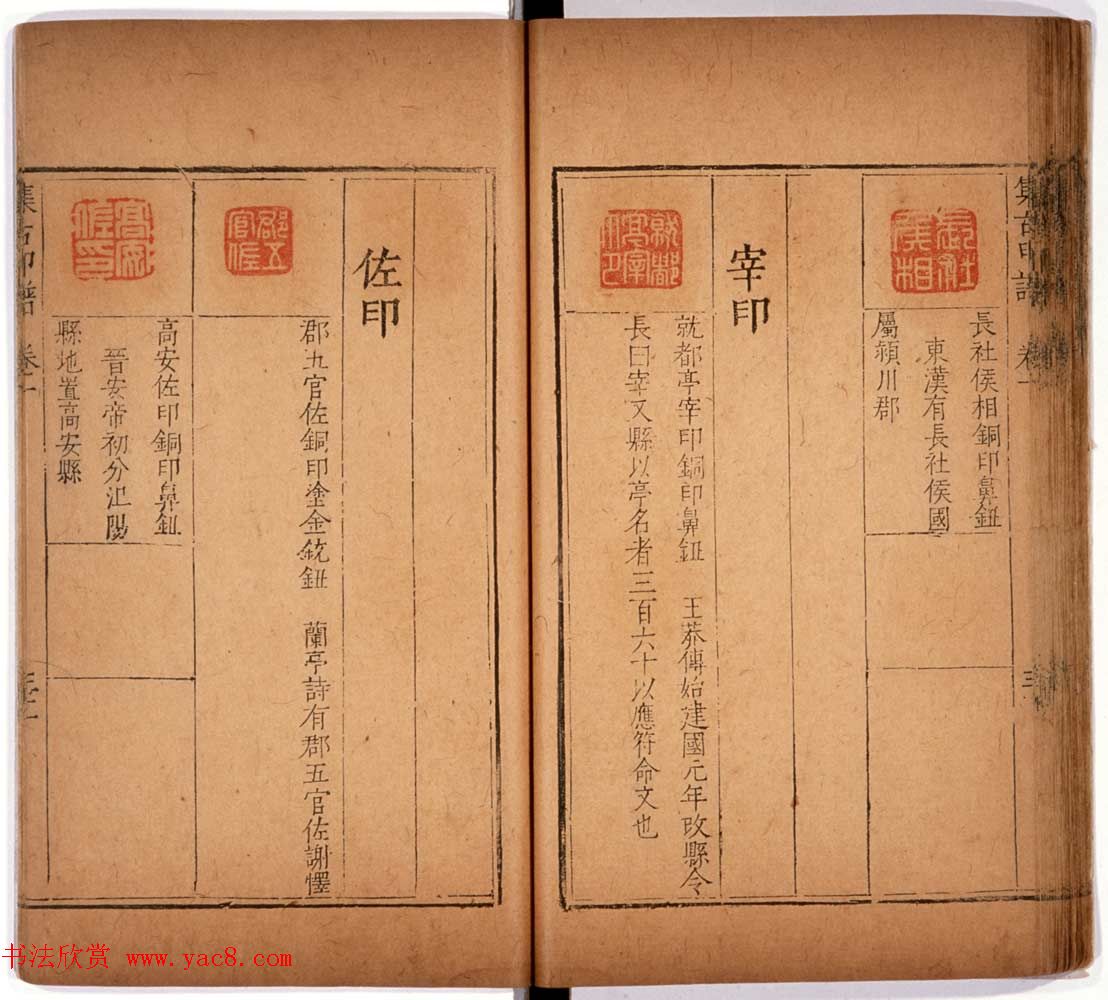 集古印譜 卷一 三
長社侯相
長社侯相銅印鼻鈕
東漢有長社侯國
屬潁川郡
宰印
就都亭宰印銅印鼻鈕 王莽傳始建國元年改縣令
長曰宰又縣以亭名者三百六十以應符命文也
佐印
郡五官佐
郡五官佐銅印塗金鈂鈕 蘭亭詩有郡五官佐謝懌
高安佐印
高安佐印銅印鼻鈕
晉安帝初分沍陽
縣地置高安縣
集古印譜 卷一
书法欣赏 www.yac8.com